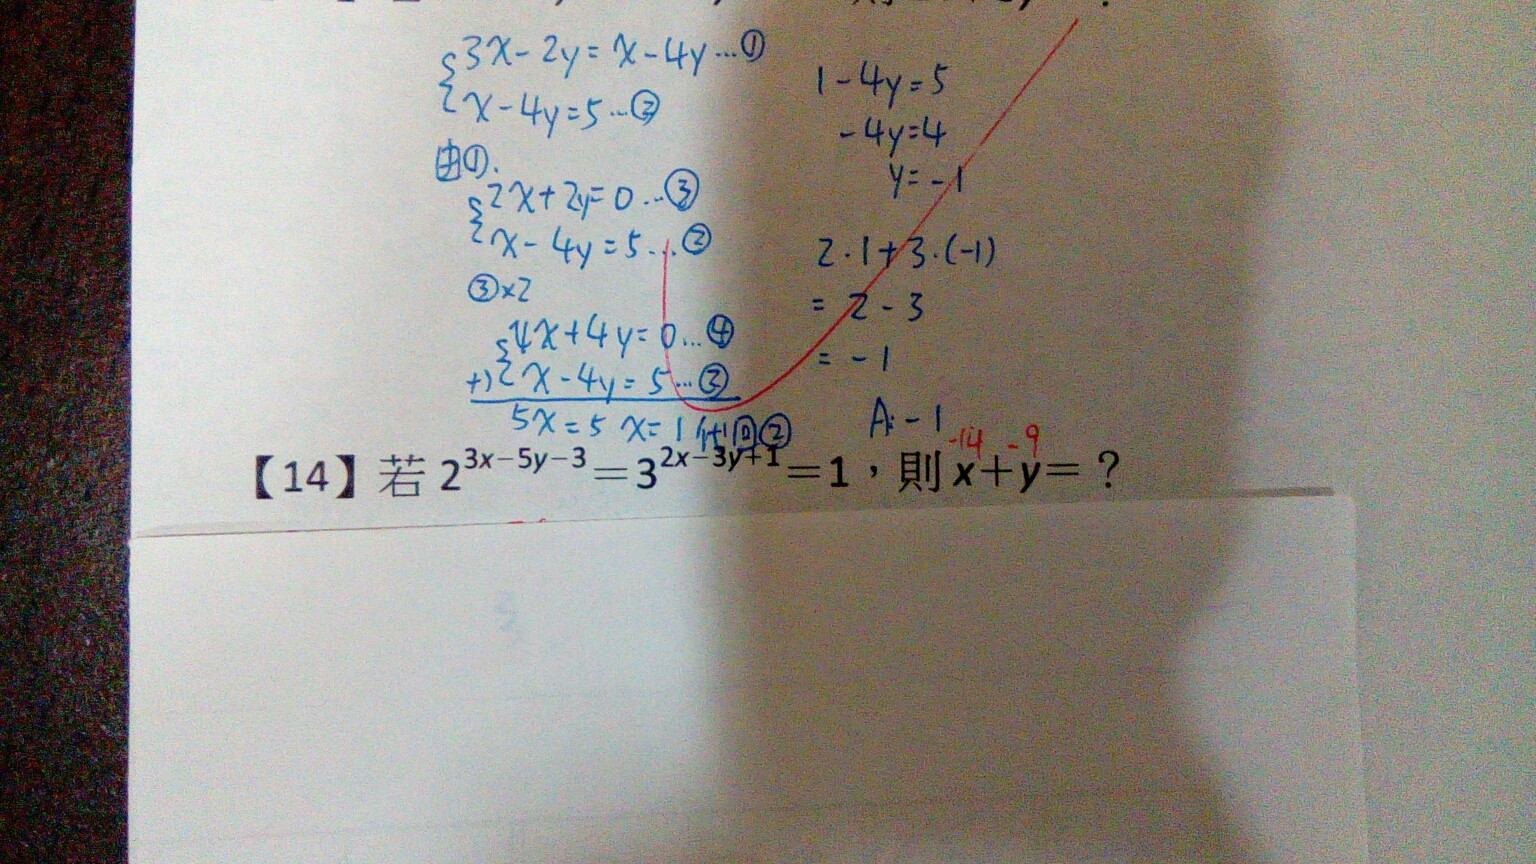 3x-2y=x-4y...①
x-4y=5...②
由①.
2x+2y=0...③
x-4y=5...②
③×2
4x+4y=0...④
+) x-4y=5...③
5x=5 x=1 代回②
1-4y=5
-4y=4
y=-1
2·1+3·(-1)
= 2-3
= -1
A:-1
-14 -9
【14】若 2^{3x-5y-3}=3^{2x-3y+1}=1，則 x+y=？